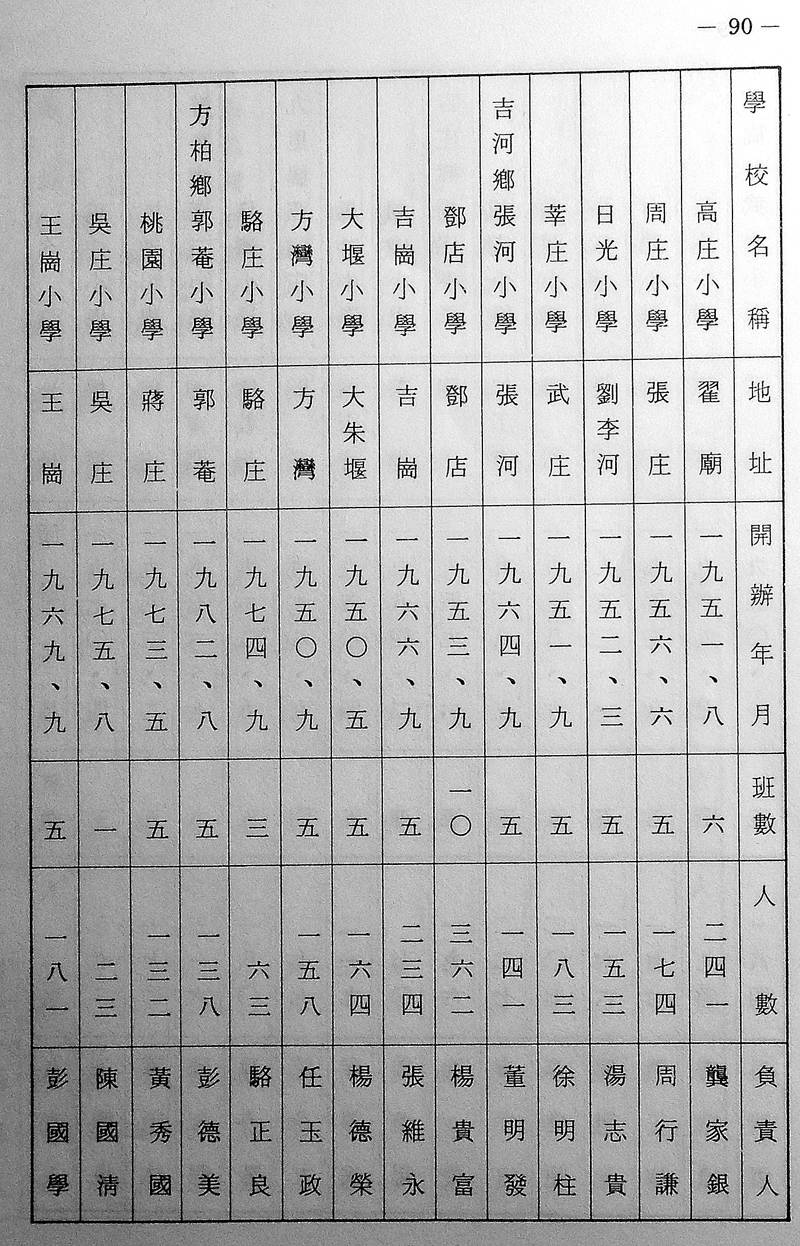 — 90 —
學校名稱 地址 開辦年月 班數 人數 負責人
高庄小學 翟廟 一九五一、八 六 二四一 龔家銀
周庄小學 張庄 一九五六、六 五 一七四 周行謙
日光小學 劉李河 一九五二、三 五 一五三 湯志貴
莘庄小學 武庄 一九五一、九 五 一八三 徐明柱
吉河鄉張河小學 張河 一九六四、九 五 一四一 董明發
鄧店小學 鄧店 一九五三、九 一〇 三六二 楊貴富
吉崗小學 吉崗 一九六六、九 五 二三四 張維永
大堰小學 大朱堰 一九五〇、五 五 一六四 楊德榮
方灣小學 方灣 一九五〇、九 五 一五八 任玉政
駱庄小學 駱庄 一九七四、九 三 六三 駱正良
方柏鄉郭菴小學 郭菴 一九八二、八 五 一三八 彭德美
桃園小學 蔣庄 一九七三、五 五 一三二 黃秀國
吳庄小學 吳庄 一九七五、八 一 二三 陳國清
王崗小學 王崗 一九六九、九 五 一八一 彭國學